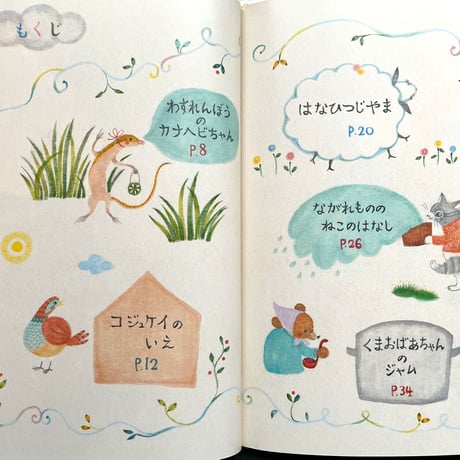 もくじ
わすれんぼう
の
カナヘビちゃん
P.8
コジュケイの
いえ
P.12
はなひつじやま
P.20
ながれものの
ねこのはなし
P.26
くまおばあちゃん
の
ジャム
P.34